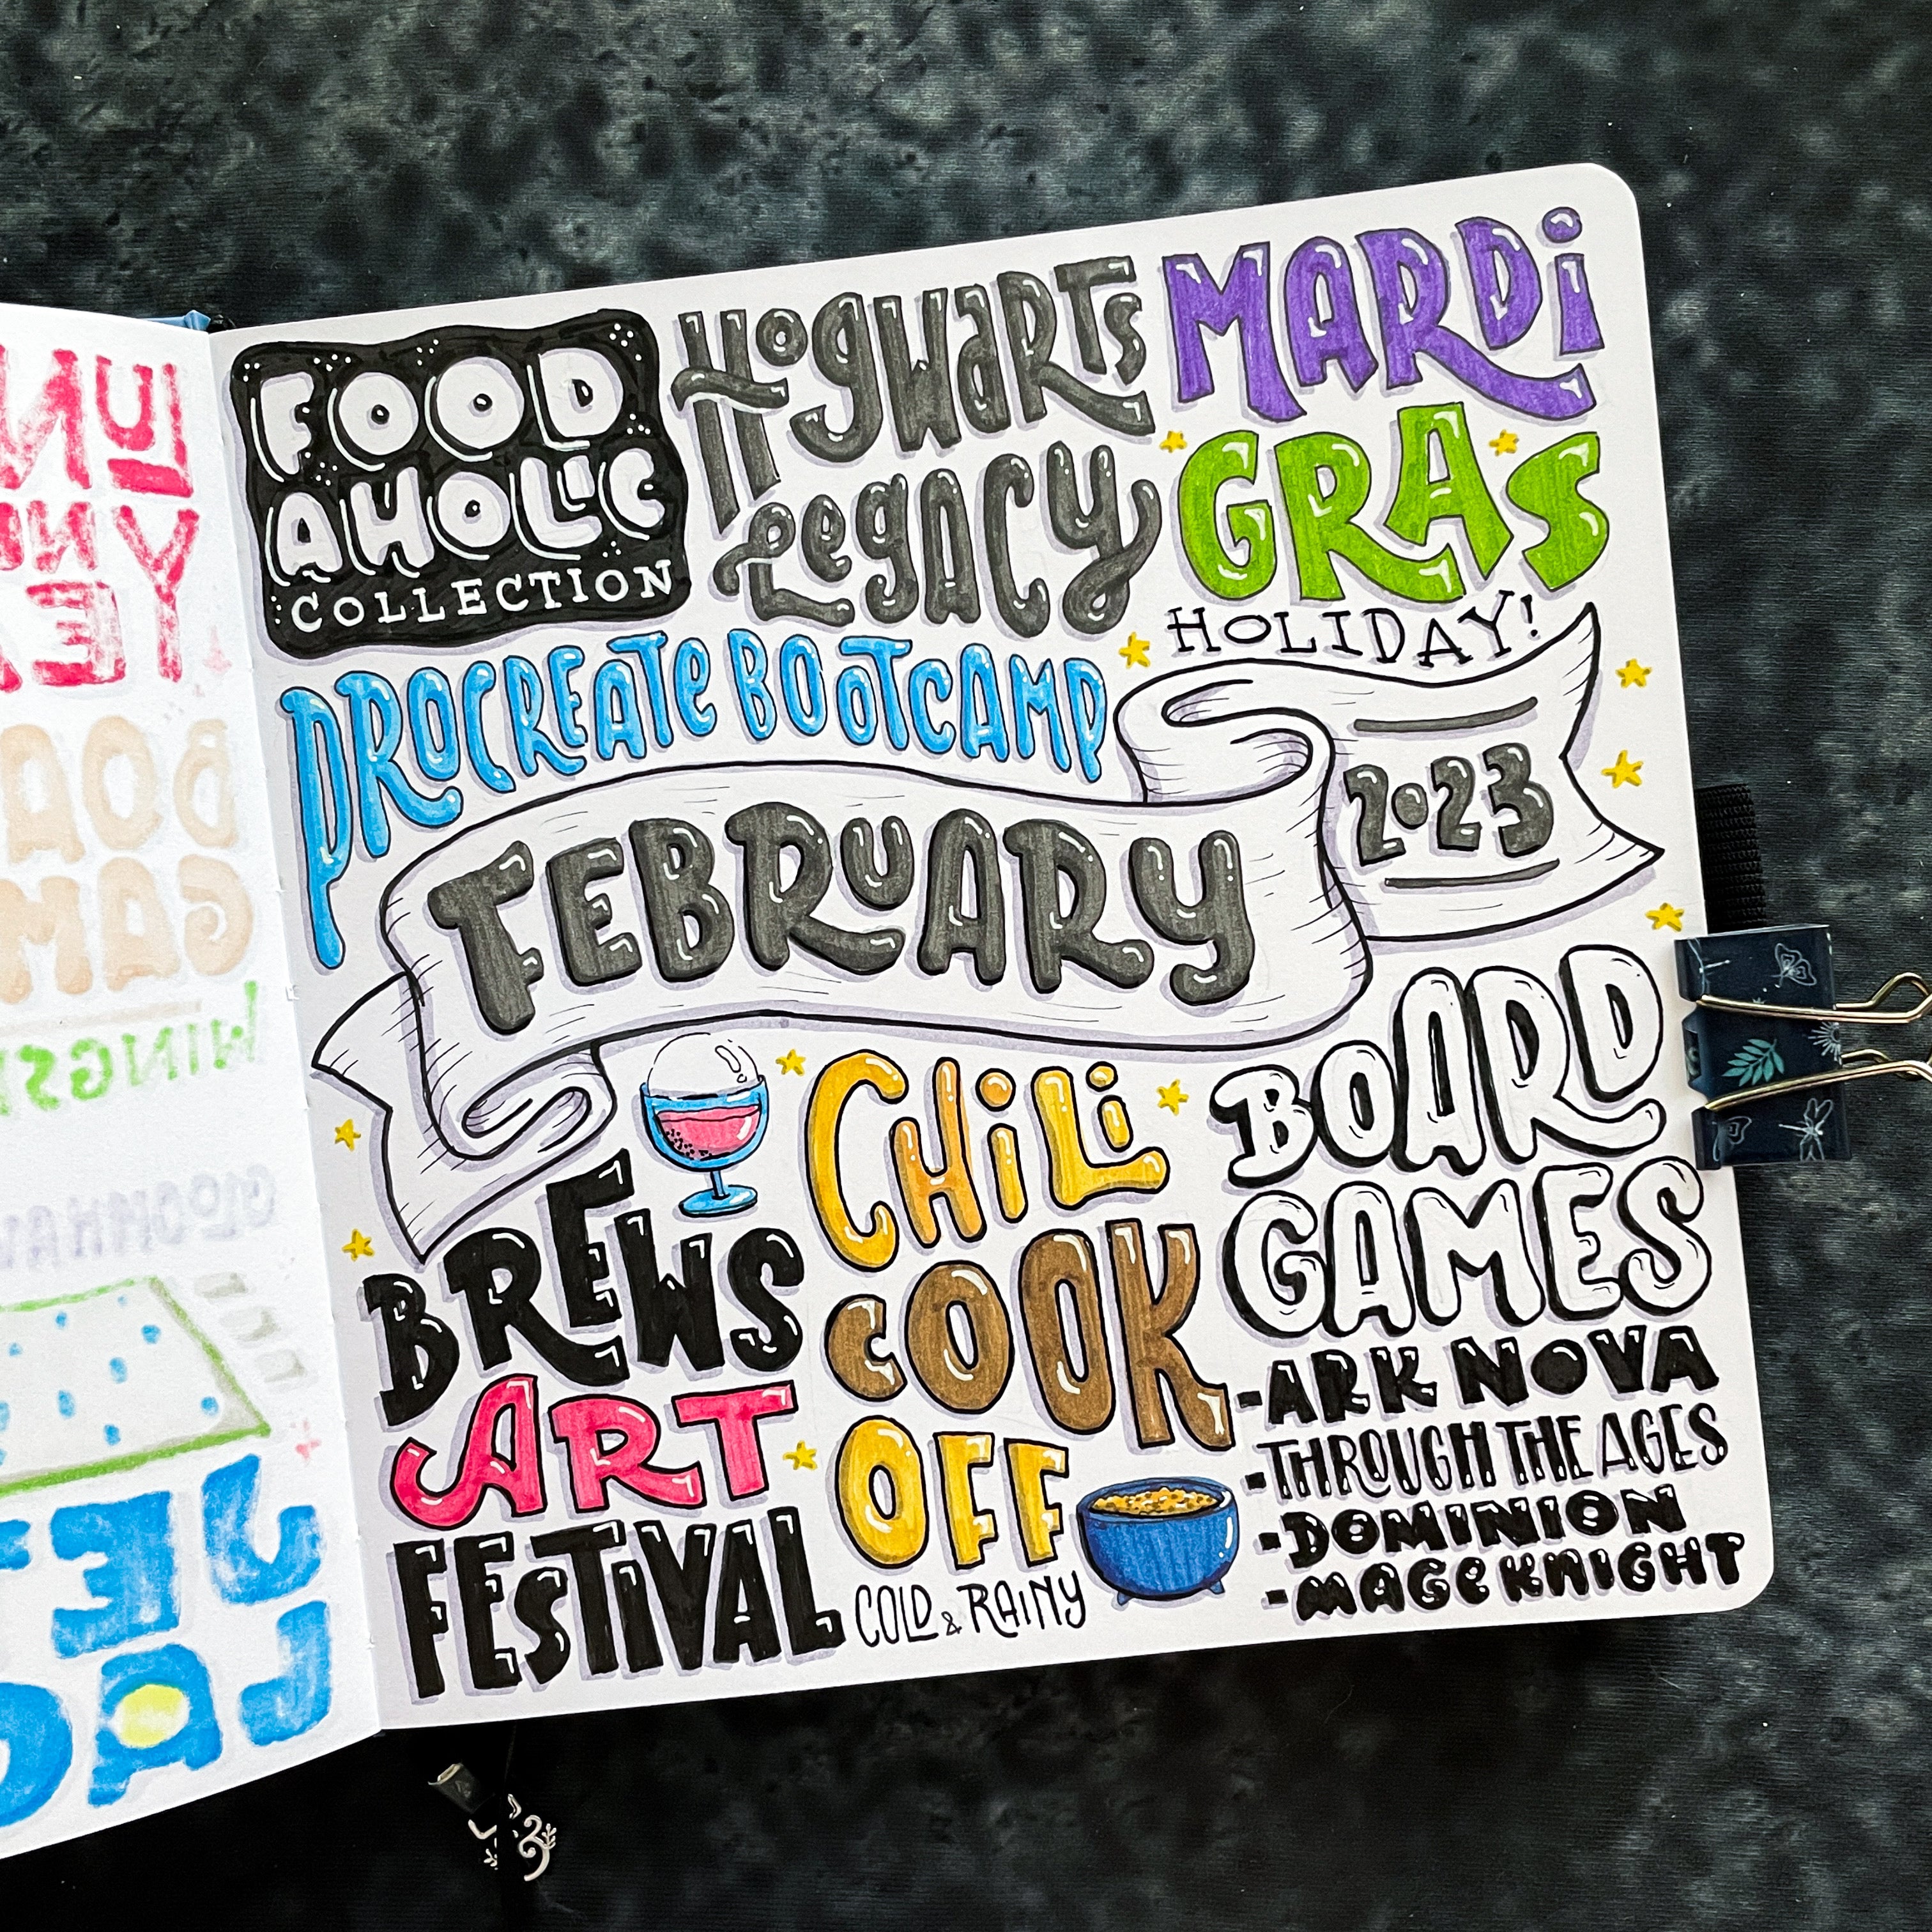 FOOD
AHOLIC
COLLECTION
HOGWARTS
LEGACY
MARDI
GRAS
HOLIDAY!
PROCREATE BOOTCAMP
FEBRUARY
2023
BREWS
ART
FESTIVAL
CHILI
COOK
OFF
COLD & RAINY
BOARD
GAMES
-ARK NOVA
-THROUGH THE AGES
-DOMINION
-MAGE KNIGHT